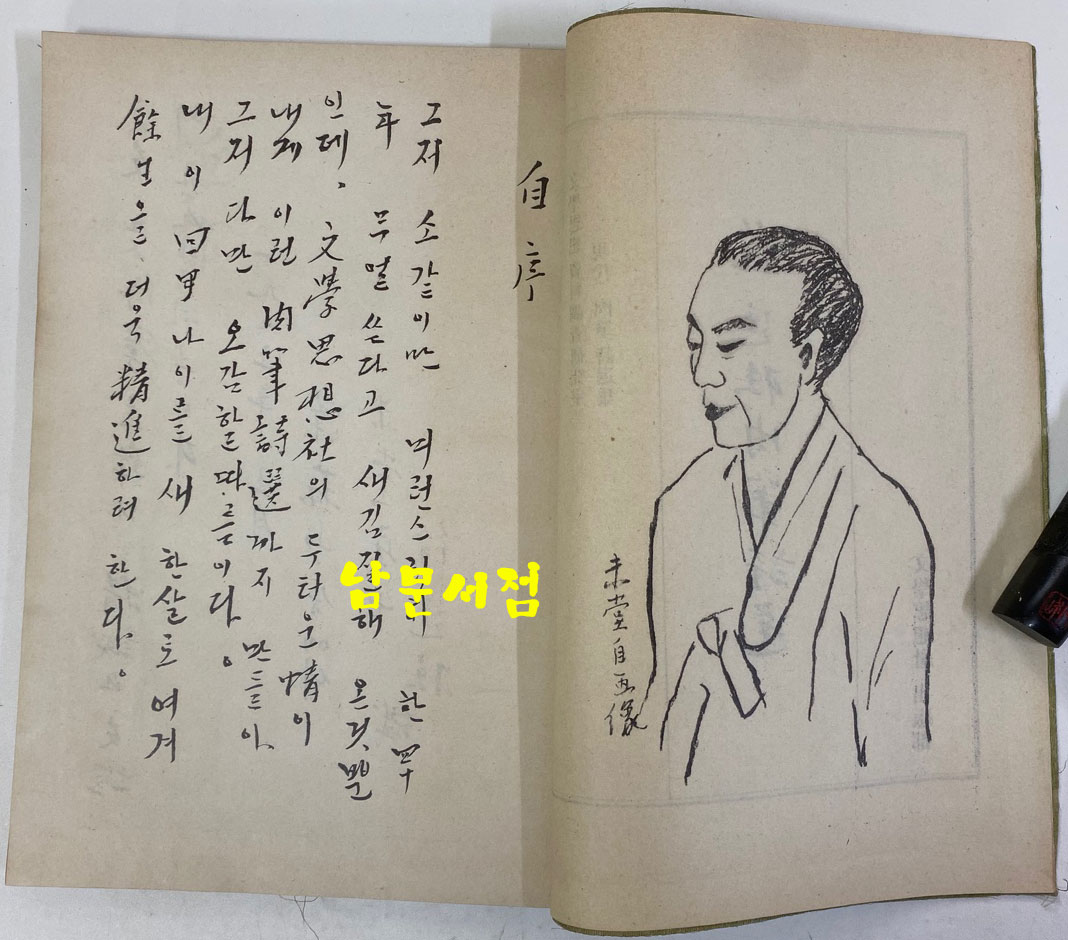 未堂自画像
自序
그저 소같이만 한 四十
年 무얼 쓰다고 새김질해 온것뿐
인데、文學思想社의 두터운 情이
내게 이런 肉筆詩選까지 만드니、
그저 다만 오감할 따름이다。
내 이 回甲 나이를 새 한살로 여겨
餘生을、더욱 精進하려 한다。
남문서점